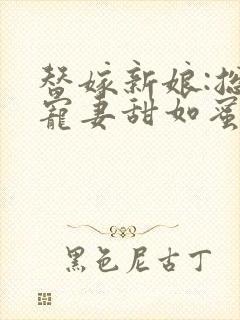 替嫁新娘:总
宠妻甜如蜜
黑色尼古丁